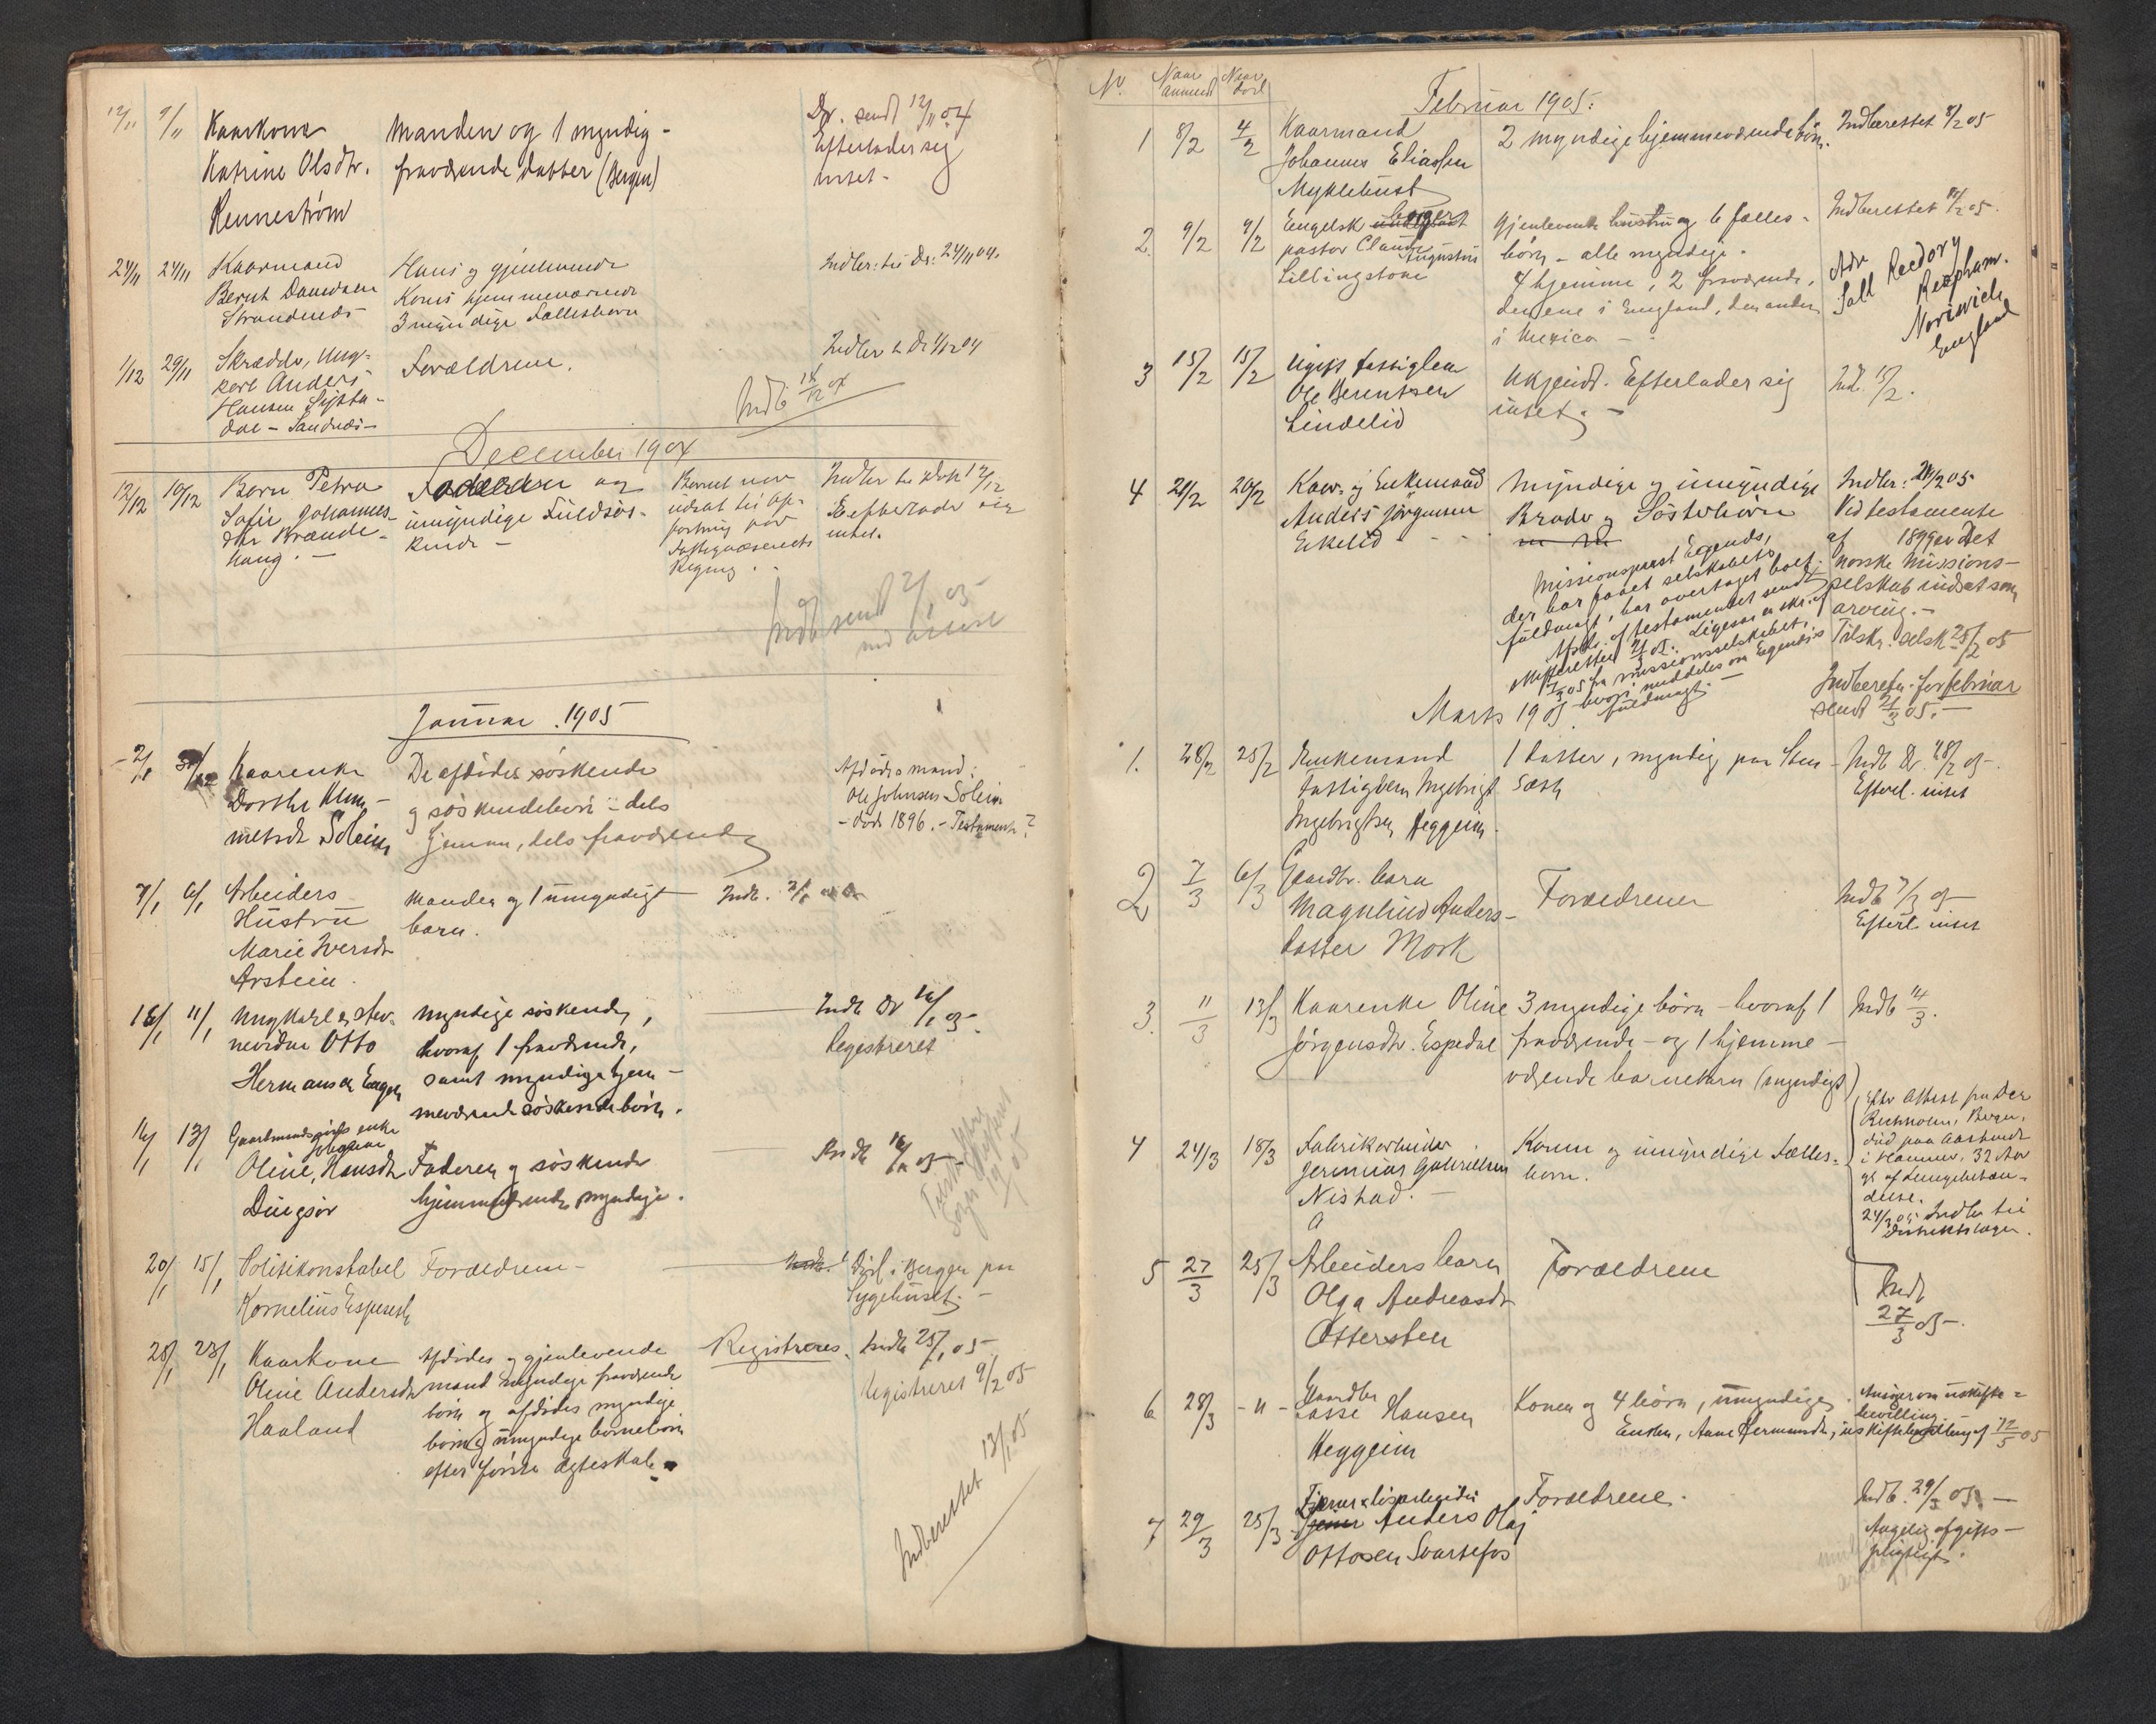 12/11 9/11 Kaarkone Manden og 1 myndig - Dr. sendt 12/11 04
Katrine Olsdtr. fraværende datter (Bergen) Efterlader sig
Rennestrøm intet -
24/11 24/11 Kaarmand Hans og gjenlevende Indber: til Dr: 24/11 04.
Bernt Danielsen Kones hjemmeværende
Strandenæs 3 myndige Fællesbørn
1/12 29/11 Skrædder, Ung- Forældrene. Indber t Dr 1/12 04
karl Anders
Hansen
dal - Sandnæs -
Indb 04
December 1904
12/12 10/12 Barn Petra og Barnet var Indber til 12/12
Sofie Johannes- umyndige Fuldsøs- udsat til op- Efterlader sig
dtr Brænde- kende - fostring paa intet.
haug. - Fattigvæsenets
Regning.
Indb sendt 2/1 05
Januar 1905
2/1 Kaarenke De afdødes søskende Afdødes mand:
Dorthe og søskendebørn - dels Ole Johnsen Solein
Solein hjemme, dels fraværende - død 1896. - Testament?
7/1 6/1 Arbeiders Manden og 1 umyndigt Indb.
Hustru barn.
Marie Iversdtr
Arstein.
16/1 11/1 Ungkarl Myndige søskende, Indb Dr 16/1 05.
Otto hvoraf 1 fraværende, Registreret
Hermansen samt myndige hjem-
meværende søskendebørn.
16/1 13/1 Gaardmandsgifts enke Indb 16/1 05 -
Oline, Hansdtr Faderen og søskende
Dingsør hjemmeværende myndige.
20/1 15/1 Politikonstabel Forældrene - Død i Bergen paa
Kornelius Espeseth Sygehuset. -
25/1 23/1 Kaarkone Afdødes og gjenlevende Registreres. Indb 25/1 05
Oline Andersdtr mand myndige fraværende Registreret 9/2 05
Haaland børn og afdødes myndige
børn og umyndige børnebørn
efter første ægteskab
Indberettet 13/1 05
N. Naar anmeldt Naar død
Februar 1905:
1 8/2 4/2 Kaarmand 2 myndige hjemmeværende børn. Indberettet 8/2 05
Johannes Eliassen
Myklebust
2 9/2 9/2 Engelsk borger Gjenlevende hustru og 6 fælles- Indberettet 05.
pastor Claude Augustus børn - alle myndige.
Lillingstone 4 hjemme, 2 fraværende,
den ene i England, den anden
i Mexico -
Adr
Sall Rectory
Reepham.
Norwich
England
3 15/2 15/2 Ugift fattiglem Ukjendt. Efterlader sig Indb. 15/2.
Ole Berentsen intet. -
Lindelid
4 21/2 20/2 Kaar- og Enkemand Myndige og umyndige Indber: 21/2 05
Anders Jørgensen Broder og Søsterbørn Ved testamente
Eikelid af 1899 er Det
norske Missions-
selskab indsat som
arving. -
Missionsprest Egenæs,
der har faaet selskabets
fuldmagt, har overtaget boet.
Afskr. af testamentet sendt
fra missionsselskabet,
hvori meddeles om Egenæs's
fuldmagt -
Tilskr. Selsk 25/2 05
Indberetn. for februar
sendt 2/3 05. -
Marts 1905.
1. 28/2 25/2 Enkemand 1 datter, myndig, paa Indb Dr. 28/2 05 -
fattiglem Ingebrigt Efterl. intet
Ingebrigtsen Heggeim.
2 7/3 6/3 Gaardbr. barn Forældrene Indb 7/3 05
Magnhild Anders- Efterl. intet
datter Mork
3. 11/3 13/3 Kaarenke Oline 3 myndige børn - hvoraf 1 Indb 14/3.
Jørgensdtr. Espedal fraværende - og 1 hjemme -
værende barnebarn (myndigt)
4 24/3 18/3 Fabrikarbeider Konen og umyndige Fælles-
Jeremias Gabrielsen børn.
Nistad. -
Efter Attest fra Dr
Bergen,
død paa
i Hammer, 32 Aar
gl. af Lungebetæn-
delse.
24/3 05 Indber til
Distriktslægen.
5 27/3 25/3 Arbeiders barn Forældrene Indb
Olga Andreasdtr 27/3 05 -
Ottersten
6 28/3 - " - Gaardbr Konen og 4 børn, umyndige. Ansøger om uskifte-
Lasse Hansen Enken, Anne Hermundsdtr, uskiftebevilling af 12/5 05 bevilling.
Heggeim
7 29/3 25/3 Anders Olaj Forældrene. Indb. 29/3 05. -
Ottosen Svartefos Angivelig afgifts-
pligtigt.